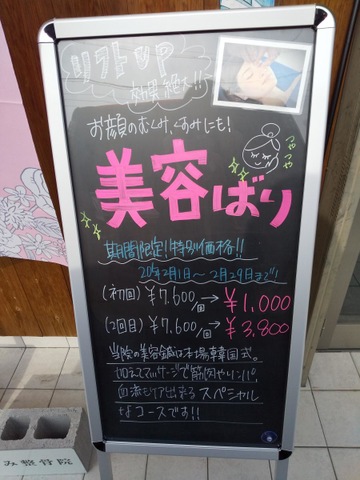 リフトUP
効果絶大!!
お顔のむくみ、くすみにも!
つやつや
美容ばり
期間限定!特別価格!!
20年2月1日〜2月29日まで!!
(初回)¥7,600/回→¥1,000
(2回目)¥7,600/回→¥3,800
当院の美容鍼は本場韓国式。
加えてマッサージで筋肉やリンパ、
血流もケア出来るスペシャル
なコースです!!
み整骨院